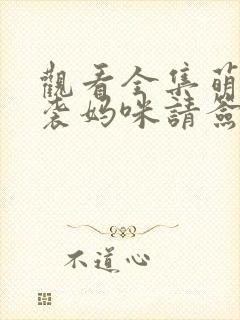 觀看全集萌
袭妈咪請簽
不道心